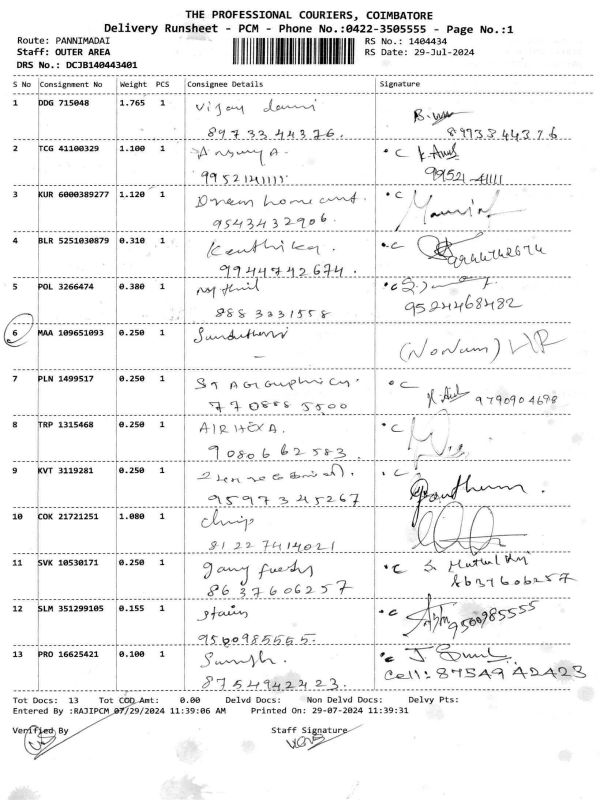 THE PROFESSIONAL COURIERS, COIMBATORE
Delivery Runsheet - PCM - Phone No.:0422-3505555 - Page No.:1
Route: PANNIMADAI RS No.: 1404434
Staff: OUTER AREA RS Date: 29-Jul-2024
DRS No.: DCJB140443401
S No Consignment No Weight PCS Consignee Details Signature
1 DDG 715048 1.765 1 Vijay
8973344376. 8973344376
2 TCG 41100329 1.100 1 Ansuya. C K.
9952141111. 99521-41111
3 KUR 6000389277 1.120 1 Dream home C
9543432906.
4 BLR 5251030879 0.310 1 Karthika. C
9944742674. 9944742674
5 POL 3266474 0.380 1 C
8883331558 9524468482
6 MAA 109651093 0.250 1
-
7 PLN 1499517 0.250 1 C
770888 5500 9790904698
8 TRP 1315468 0.250 1 AIR C
9080662583.
9 KVT 3119281 0.250 1 C
9597345267
10 COK 21721251 1.080 1
81227414021
11 SVK 10530171 0.250 1 C S.
8637606257 8637606257
12 SLM 351299105 0.155 1 C
9500985555. 9500985555
13 PRO 16625421 0.100 1 C J
8754942423. cell: 87549 42423
Tot Docs: 13 Tot COD Amt: 0.00 Delvd Docs: Non Delvd Docs: Delvy Pts:
Entered By :RAJIPCM 07/29/2024 11:39:06 AM Printed On: 29-07-2024 11:39:31
Verified By Staff Signature